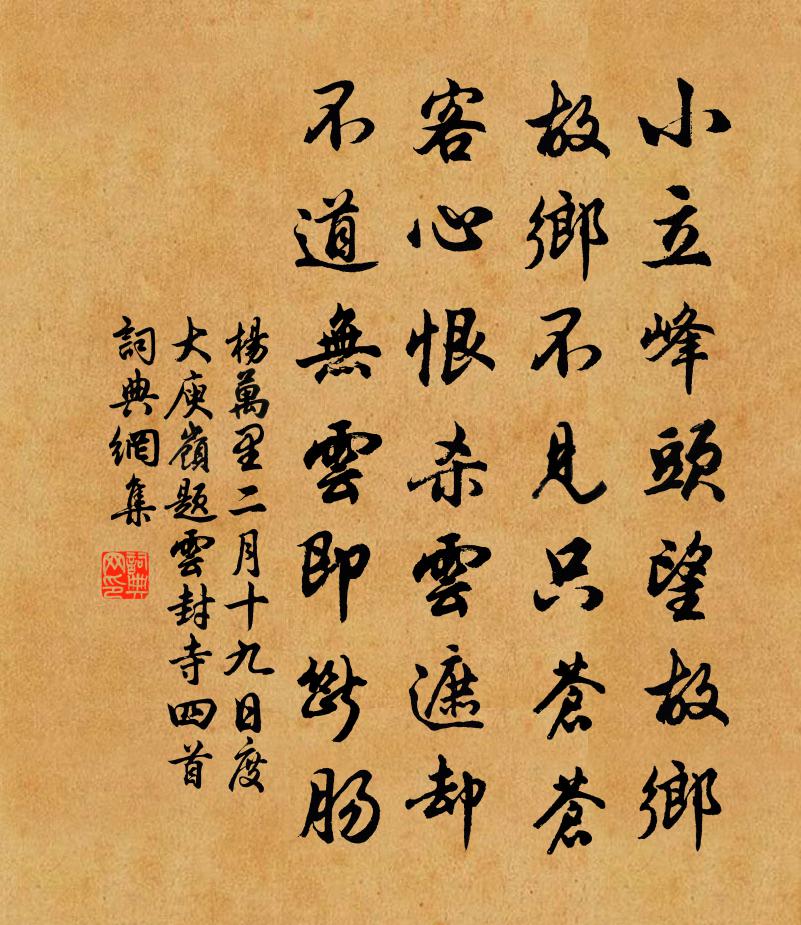 小立峰頭望故鄉
故鄉不見只蒼蒼
客心恨杀雲遮却
不道無雲即斷腸
楊萬里二月十九日度
大庾嶺題雲封寺四首
詞典網集
詞典网印